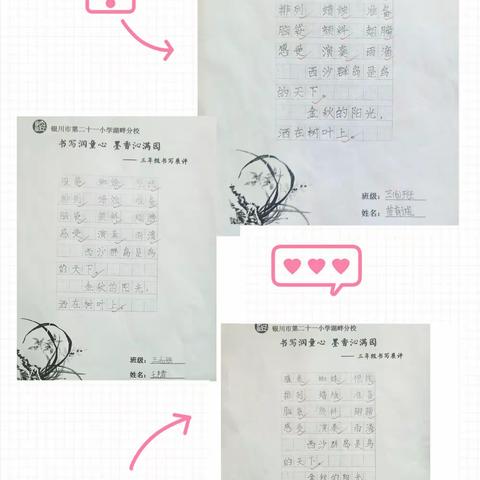 排列 蜡烛 准备
脑袋 颜料 翅膀
感受 演奏 雨滴
西沙群岛是鸟
的天下。
金秋的阳光,
洒在树叶上。
班级:
姓名:
银川市第二十一小学湖畔分校
书写润童心 墨香沁满园
—— 三年级书写展评
排列 蜡烛 准备
脑袋 颜料 翅膀
感受 演奏 雨滴
西沙群岛是鸟
的天下。
金秋的阳光,
洒在树叶上。
班级:
姓名:
银川市第二十一小学湖畔分校
书写润童心 墨香沁满园
—— 三年级书写展评
排列 蜡烛 准备
脑袋 颜料 翅膀
感受 演奏 雨滴
西沙群岛是鸟
的天下。
金秋的阳光